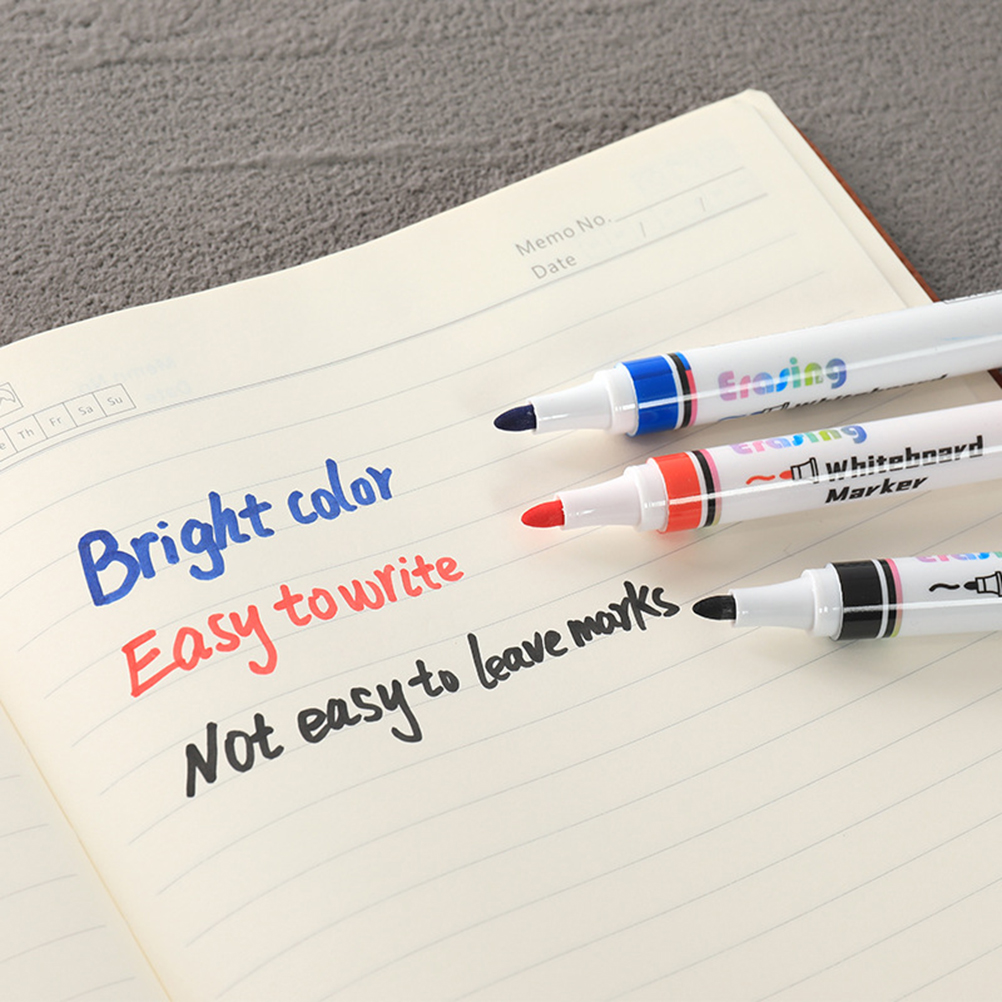 Memo No.
Date / /
Th Fr Sa Su
Bright color
Easy to write
Not easy to leave marks
Erasing
Whiteboard
Erasing
Whiteboard
Marker
Erasing